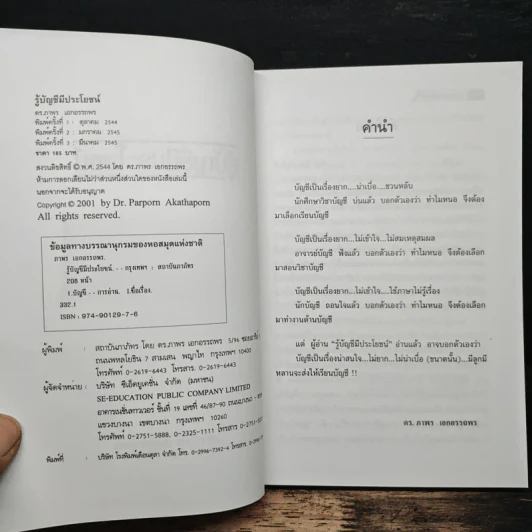 รู้บัญชีมีประโยชน์
ดร.ภาพร เอกอรรถพร
พิมพ์ครั้งที่ 1 : ตุลาคม 2544
พิมพ์ครั้งที่ 2 : มกราคม 2545
พิมพ์ครั้งที่ 3 : มีนาคม 2545
ราคา 185 บาท
สงวนลิขสิทธิ์ © พ.ศ. 2544 โดย ดร.ภาพร เอกอรรถพร
ห้ามการลอกเลียนไม่ว่าส่วนหนึ่งส่วนใดของหนังสือเล่มนี้
นอกจากจะได้รับอนุญาต
Copyright © 2001 by Dr. Parporn Akathaporn
All rights reserved.
ข้อมูลทางบรรณานุกรมของหอสมุดแห่งชาติ
ภาพร เอกอรรถพร.
รู้บัญชีมีประโยชน์. - - กรุงเทพฯ : สถาบันภาภัทร
208 หน้า
1.บัญชี - - การอ่าน. I.ชื่อเรื่อง.
332.1
ISBN : 974-90129-7-6
ผู้พิมพ์ : สถาบันภาภัทร โดย ดร.ภาพร เอกอรรถพร 5/94
ถนนพหลโยธิน 7 สามเสน พญาไท กรุงเทพฯ 10400
โทรศัพท์ 0-2619-6443 โทรสาร. 0-2619-6443
ผู้จัดจำหน่าย : บริษัท ซีเอ็ดยูเคชั่น จำกัด (มหาชน)
SE-EDUCATION PUBLIC COMPANY LIMITED
อาคารเนชั่นทาวเวอร์ ชั้นที่ 19 เลขที่ 46/87-90 ถนนบางนา-
แขวงบางนา เขตบางนา กรุงเทพฯ 10260
โทรศัพท์ 0-2751-5888, 0-2325-1111 โทรสาร 0-2751
พิมพ์ที่ : บริษัท โรงพิมพ์เดือนตุลา จำกัด โทร. 0-2996-7392-4 โทรสาร
คำนำ
บัญชีเป็นเรื่องยาก....น่าเบื่อ....ชวนหลับ
นักศึกษาวิชาบัญชี บ่นแล้ว บอกตัวเองว่า ทำไมหนอ จึงต้อง
มาเลือกเรียนบัญชี
บัญชีเป็นเรื่องยาก....ไม่เข้าใจ....ไม่สมเหตุสมผล
อาจารย์บัญชี ฟังแล้ว บอกตัวเองว่า ทำไมหนอ จึงต้องเลือก
มาสอนวิชาบัญชี
บัญชีเป็นเรื่องยาก....ไม่เข้าใจ....ใช้ภาษาไม่รู้เรื่อง
นักบัญชี ถอนใจแล้ว บอกตัวเองว่า ทำไมหนอ จึงต้องเลือก
มาทำงานด้านบัญชี
แต่ ผู้อ่าน "รู้บัญชีมีประโยชน์" อ่านแล้ว อาจบอกตัวเองว่า
บัญชีเป็นเรื่องน่าสนใจ....ไม่ยาก....ไม่น่าเบื่อ (ขนาดนั้น)....มีลูกมี
หลานจะส่งให้เรียนบัญชี !!
ดร. ภาพร เอกอรรถพร